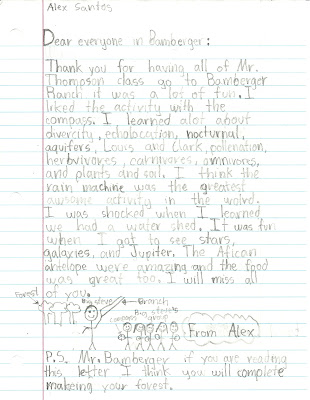 Alex Santos
Dear everyone in Bamberger:
Thank you for having all of Mr.
Thompson class go to Bamberger
Ranch it was a lot of fun. I
liked the activity with the
compass. I learned alot about
divercity, echolocation, nocturnal,
aquifers, Louis and Clark, pollenation,
herbivores, carnivores, omnivores,
and plants and soil. I think the
rain machine was the greatest
awsome activity in the world.
I was shocked when I learned
we had a water shed. It was fun
when I got to see stars,
galaxies, and Jupiter. The African
antelope were amazing and the food
was great too. I will miss all
of you.
Forest
Big steve
Branch
Big steve's
group
compass
From Alex
P.S. Mr. Bamberger if you are reading
this letter I think you will complete
makeing your forest.